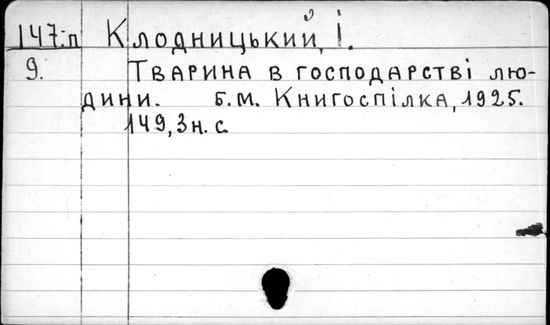 147:п Клодницький, І.
9. Тварина в господарстві лю-
дини. б.м. Книгоспілка, 1925.
149, 3н. с.